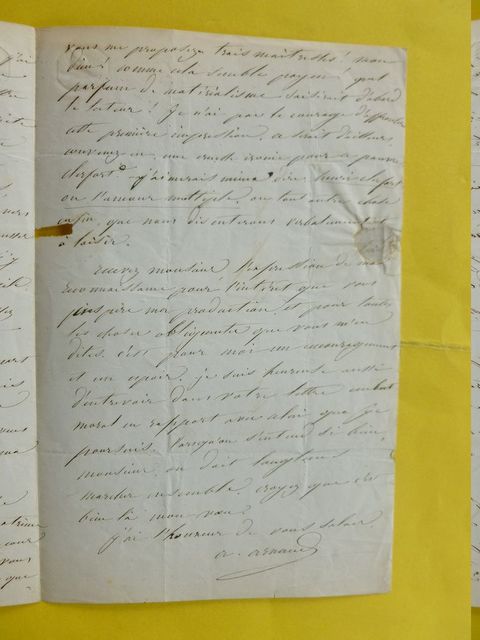 vous me proposez trois maîtresses ! mon
dieu ! comme cela semble payen ! quel
parfum de matérialisme saisirait d'abord
le lecteur ! Je n'ai pas le courage d'affronter
cette première impression, ce serait d'ailleurs,
convenez en, une cruelle ironie pour ce pauvre
Clerfort - j'aimerais mieux dire henri clerfort
ou l'amour multiple, ou tout autre chose
enfin, que nous discuterons verbalement et
à loisir.
recevez monsieur l'expression de ma
reconnaissance pour l'intérêt que vous
inspire ma production, et pour toutes
les choses obligeantes que vous m'en
dites, c'est pour moi un encouragement
et un espoir. je suis heureuse aussi
d'entrevoir dans votre lettre un but
moral en rapport avec celui que je
poursuis. lorsqu'on s'entend si bien,
monsieur, on doit longtems
marcher ensemble. croyez que c'est
bien là mon vœu.
j'ai l'honneur de vous saluer.
a. arnaud